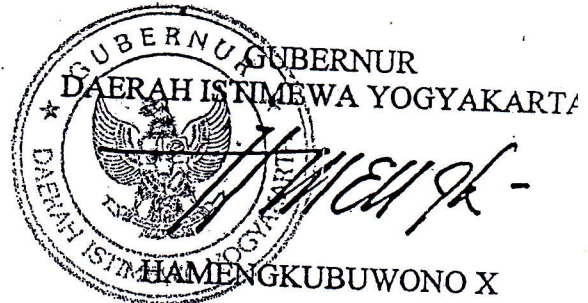 GUBERNUR
DAERAH ISTIMEWA YOGYAKARTA
HAMENGKUBUWONO X
GUBERNUR
DAERAH ISTIMEWA YOGYAKARTA